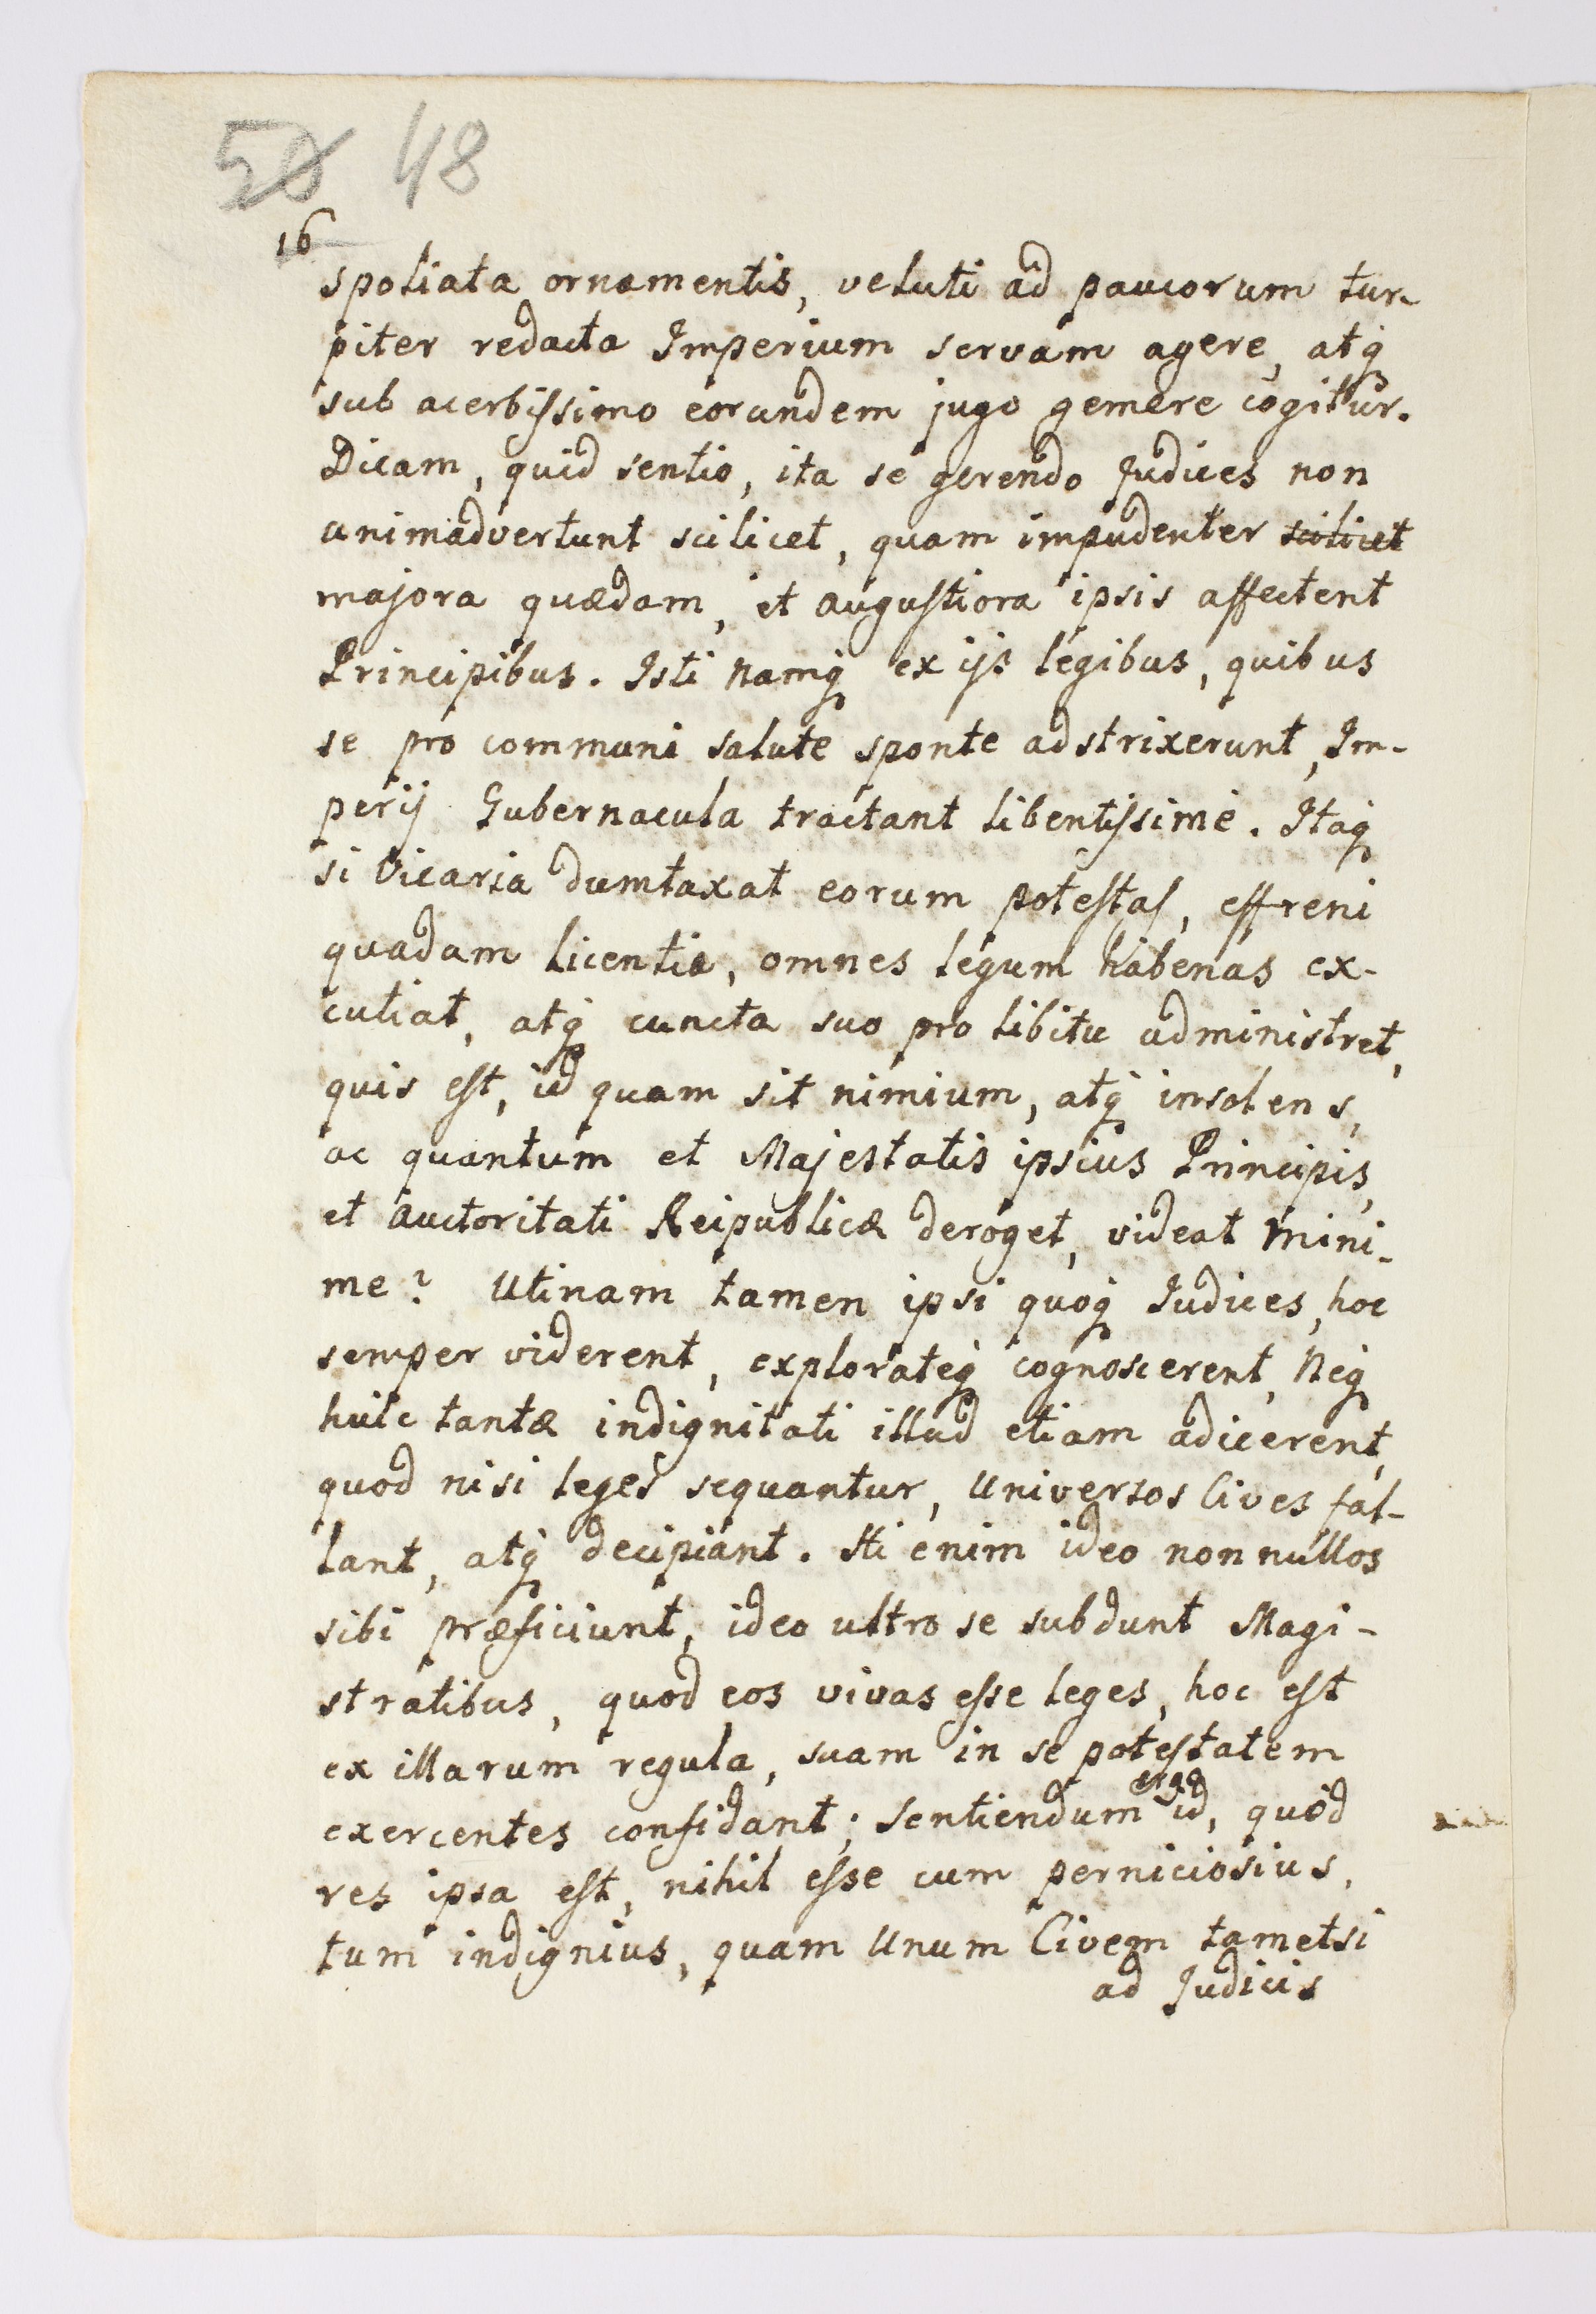 50 48
16
spoliata ornamentis, veluti ad paucorum tur-
piter redacta Imperium servam agere, atq
sub acerbissimo eorundem jugo gemere cogitur.
Dicam, quid sentio, ita se gerendo Judices non
animadvertunt scilicet, quam impudenter scilicet
majora quædam, et augustiora ipsis affectent
Principibus. Isti namq ex ijs legibus, quibus
se pro communi salute sponte adstrixerunt, Im-
perij Gubernacula tractant libentissime. Itaq
si Vicaria dumtaxat eorum potestas, effreni
quadam licentia, omnes legum habenas ex-
cutiat, atq cuncta suo pro libitu administret,
quis est, id quam sit nimium, atq insolens,
ac quantum et Majestatis ipsius Principis,
et auctoritati Reipublicæ deroget, videat mini-
me? Utinam tamen ipsi quoq Iudices, hoc
semper viderent, explorateq cognoscerent, Neq
huic tantæ indignitati illud etiam adicerent,
quod nisi leges sequantur, Universos Cives fal-
lant, atq decipiant. Hi enim ideo nonnullos
sibi præficiunt, ideo ultro se subdunt Magi-
stratibus, quod eos vivas esse leges, hoc est
ex illarum regula, suam in se potestatem
exercentes confidant; sentiendum ergo id, quod
res ipsa est, nihil esse cum perniciosius,
tum indignius, quam Unum Civem tametsi
ad Judicis